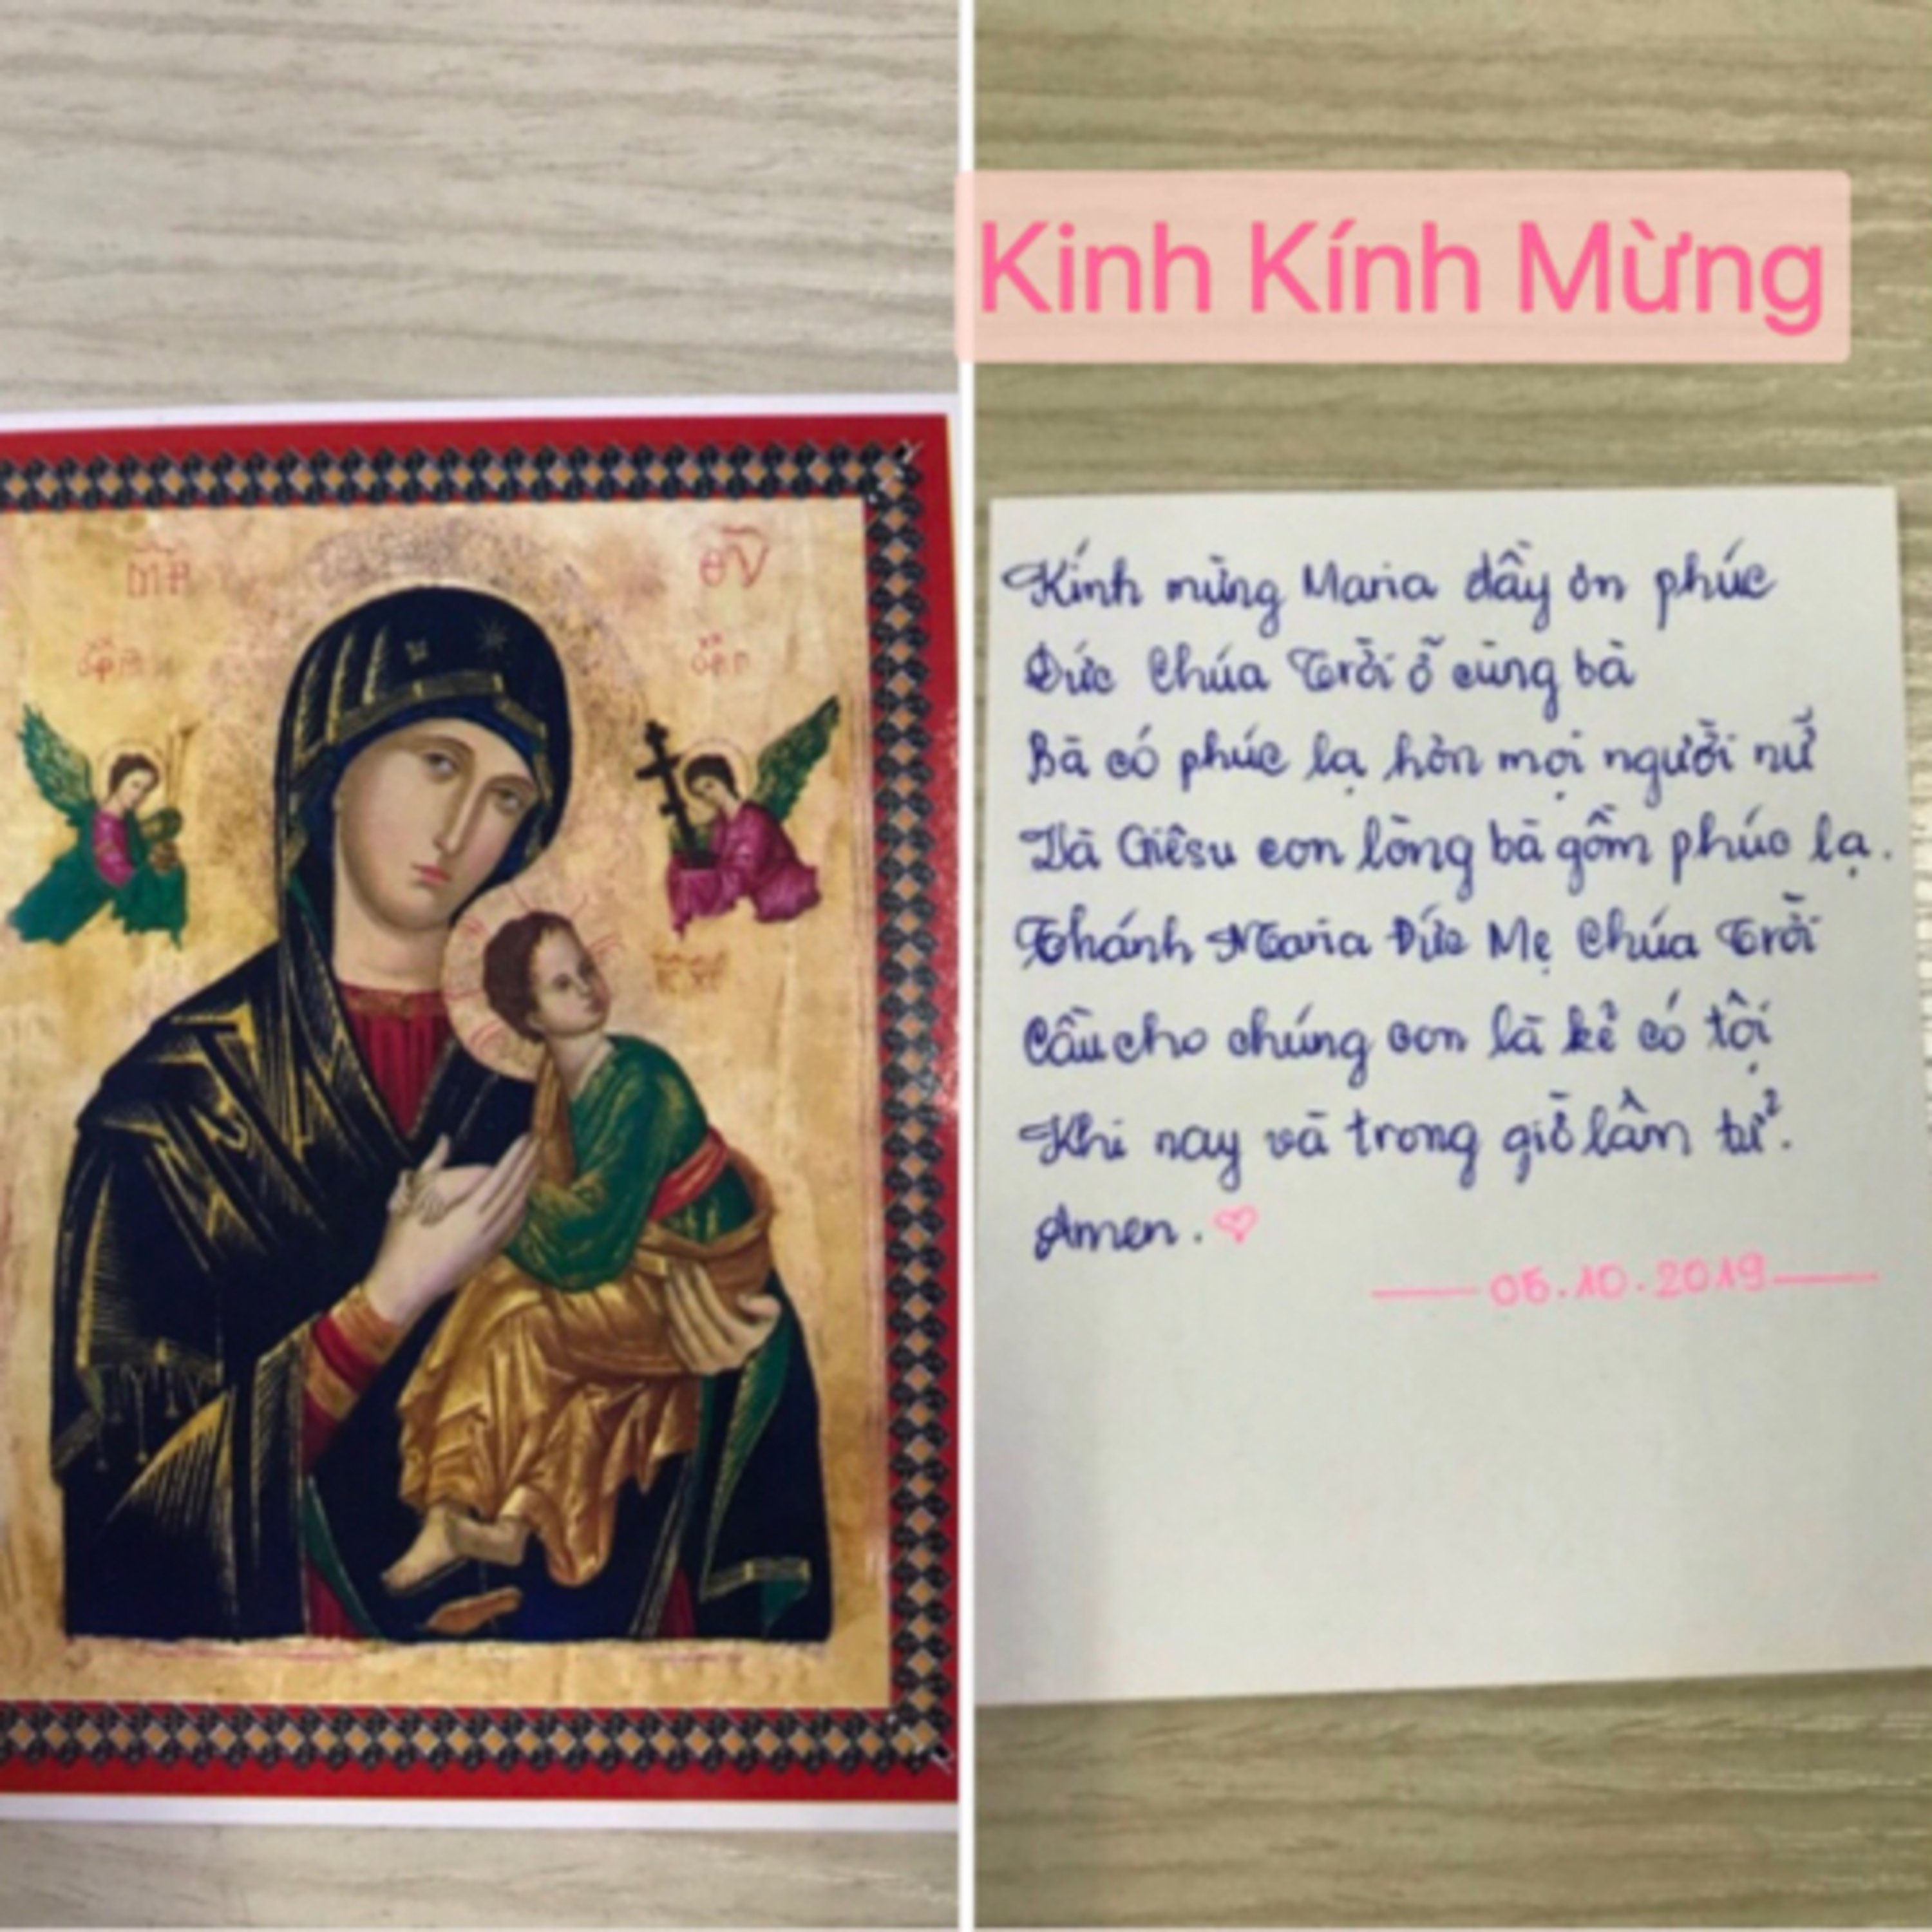 Kinh Kính Mừng
Kính mừng Maria đầy ơn phúc
Đức Chúa Trời ở cùng bà
Bà có phúc lạ hơn mọi người nữ
Và Giêsu con lòng bà gồm phúc lạ.
Thánh Maria Đức Mẹ Chúa Trời
Cầu cho chúng con là kẻ có tội
Khi nay và trong giờ lâm tử.
Amen.
05.10.2019